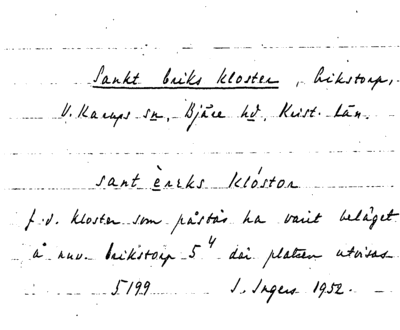 Sankt Eriks kloster, Erikstorp,
V. Karups sn, Bjäre hd, Krist. län.
sant èreks klóstor
f.d. kloster som påstås ha varit beläget
å nuv. Erikstorp 5⁴ där platsen utvisas
5199 I. Ingers 1952.